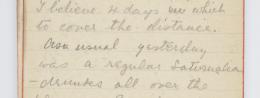 I believe 4 days in which
to cover the distance.
As usual yesterday
was a regular Saturnalia
– drunks all over the